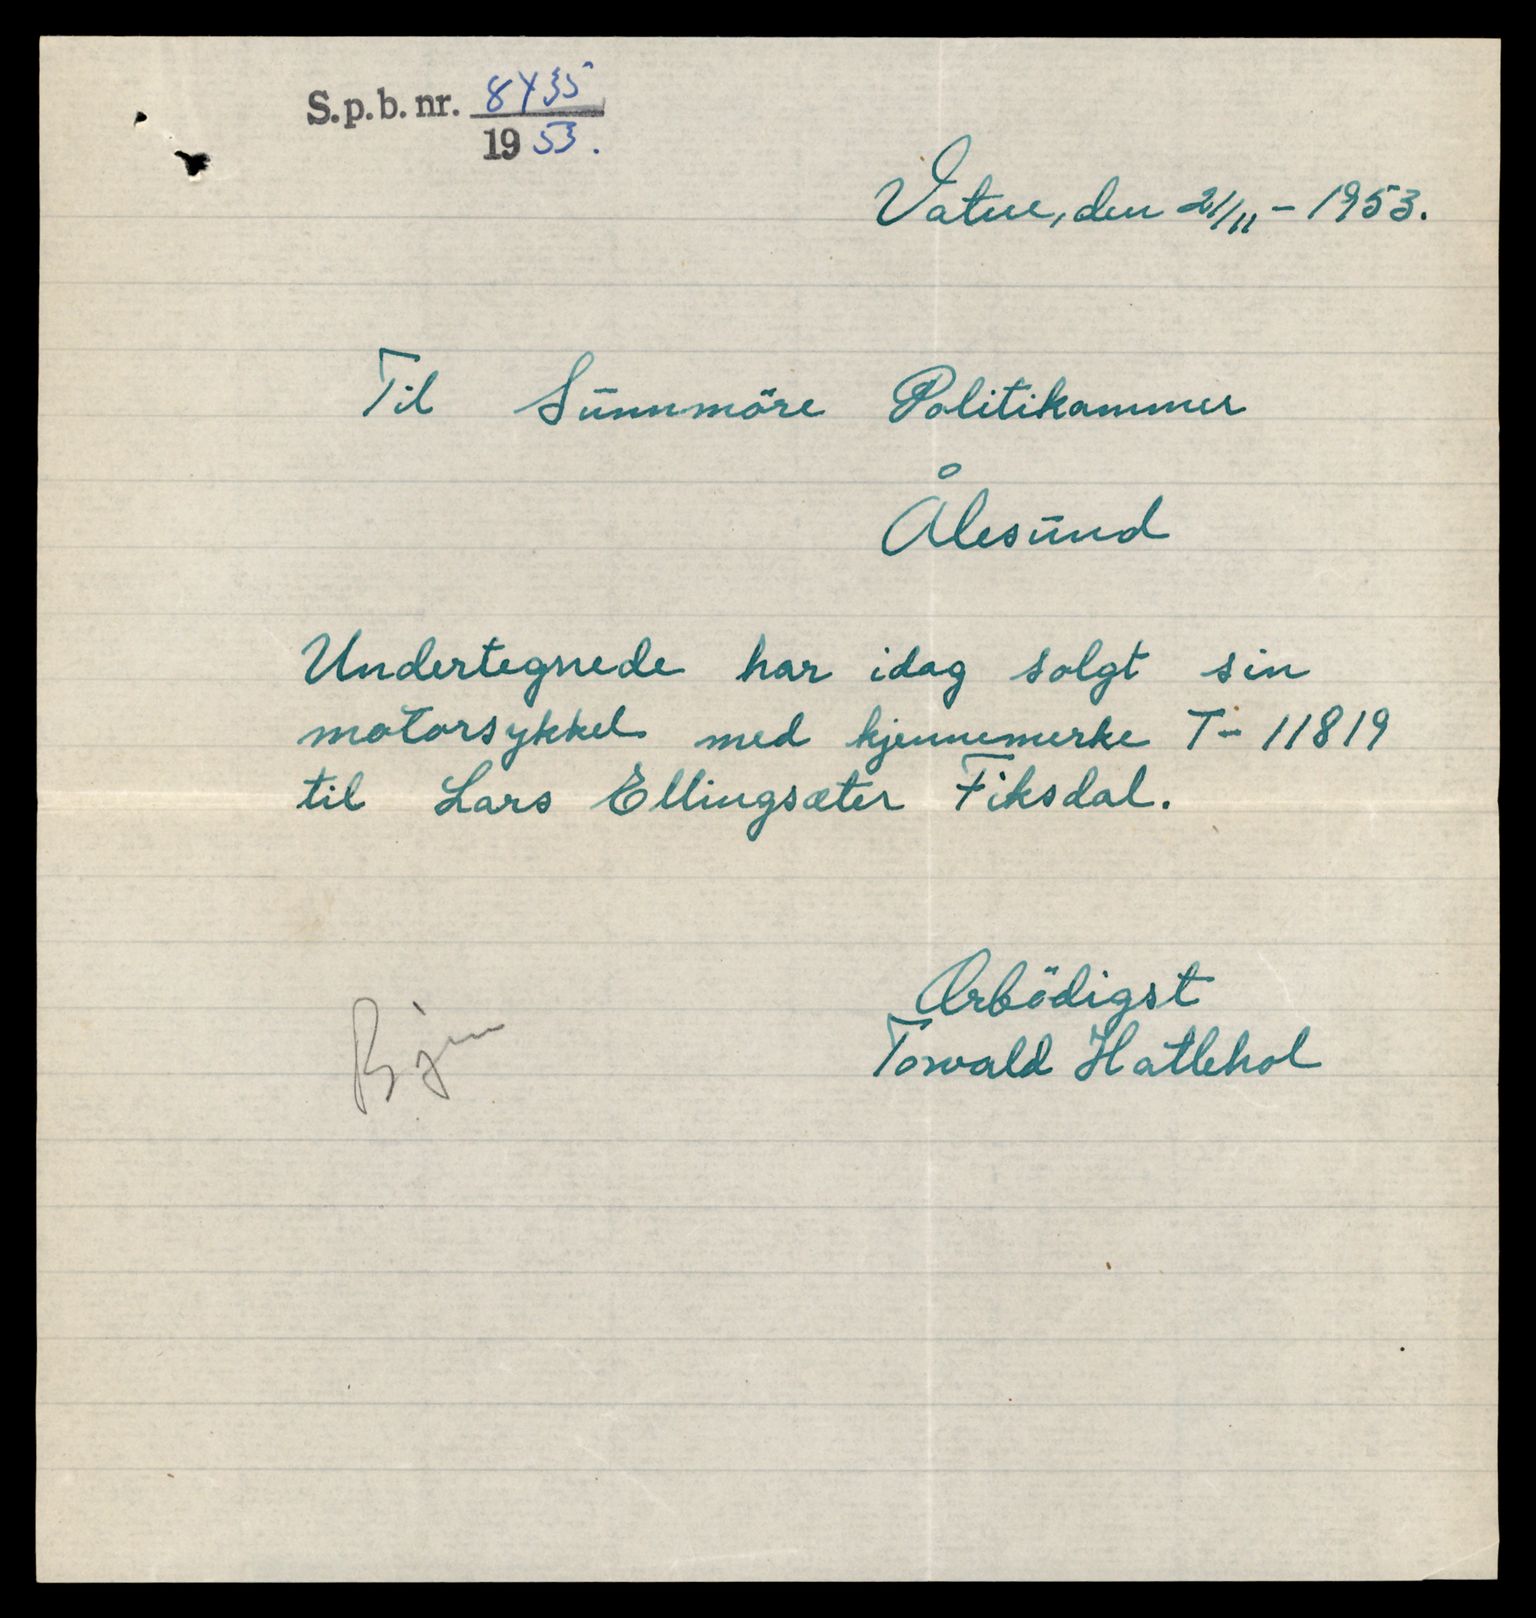 S.p.b. nr. 8435
1953.
Vatne, den 21/11 - 1953.
Til Sūnnmöre Politikammer
Ålesūnd
Undertegnede har idag solgt sin
motorsykkel med kjennemerke T- 11819
til Lars Ellingsæter Fiksdal.
Ærbödigst
Torvald Hatlehol